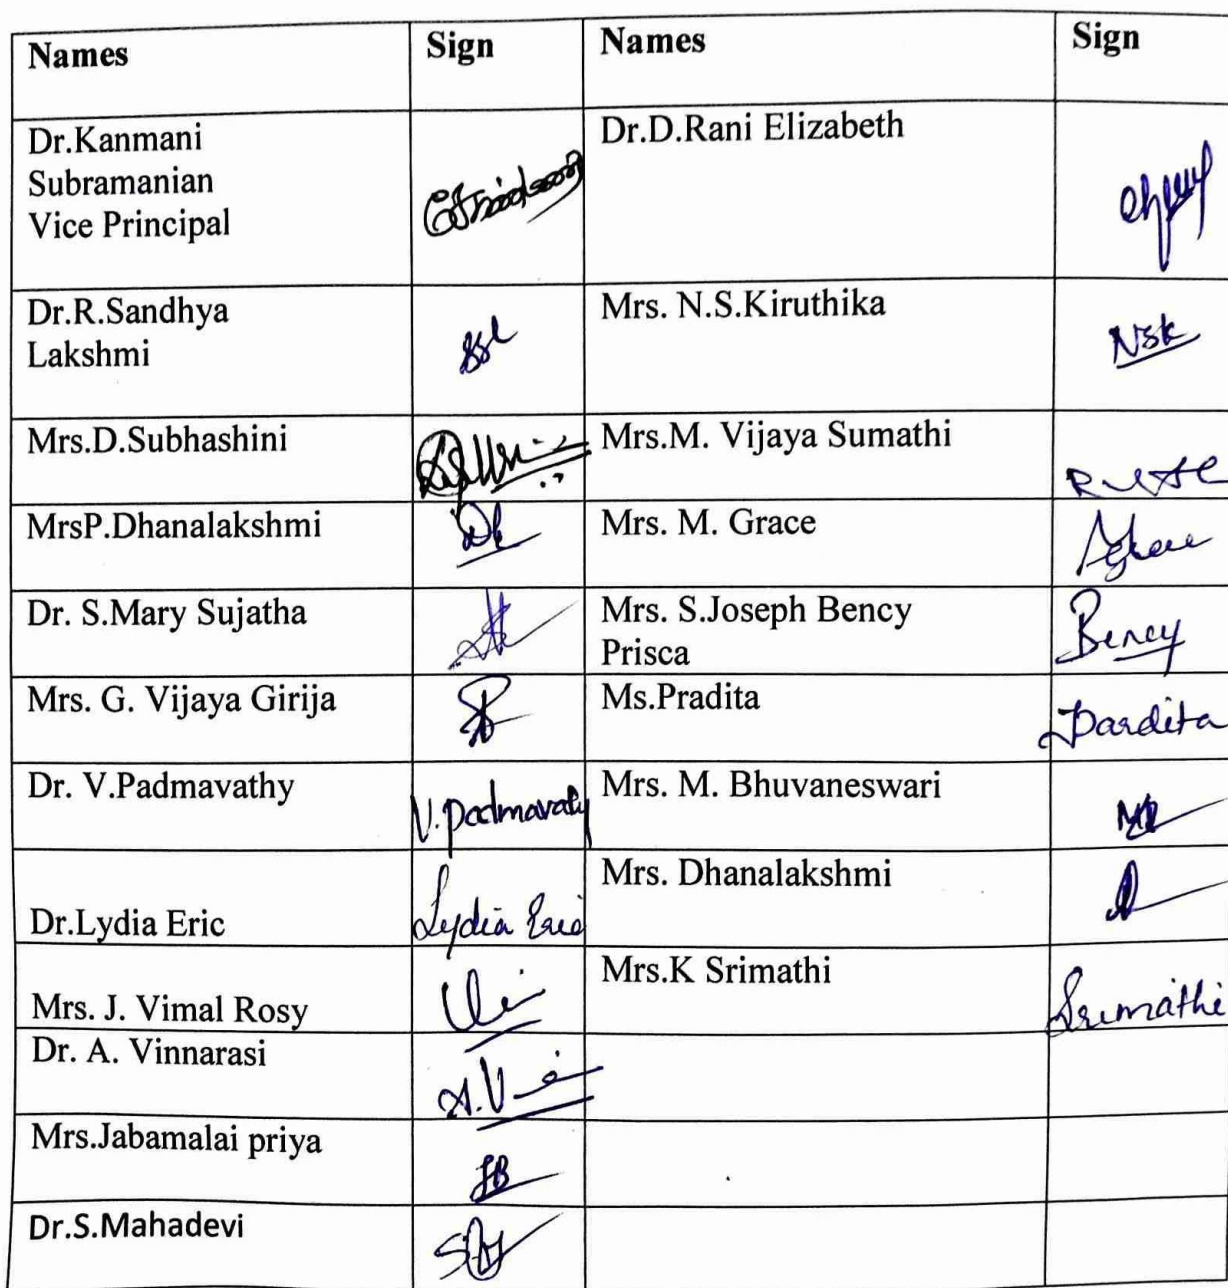 Names Sign Names Sign
Dr.Kanmani
Subramanian
Vice Principal
Dr.D.Rani Elizabeth
Dr.R.Sandhya
Lakshmi
ssl
Mrs. N.S.Kiruthika
Nsk
Mrs.D.Subhashini
Mrs.M. Vijaya Sumathi
MrsP.Dhanalakshmi
Mrs. M. Grace
Dr. S.Mary Sujatha
Mrs. S.Joseph Bency
Prisca
Bency
Mrs. G. Vijaya Girija
Ms.Pradita
Pardita
Dr. V.Padmavathy
V.Padmavaty
Mrs. M. Bhuvaneswari
Dr.Lydia Eric
Lydia Eric
Mrs. Dhanalakshmi
Mrs. J. Vimal Rosy
Mrs.K Srimathi
Srimathi
Dr. A. Vinnarasi
Mrs.Jabamalai priya
JB
Dr.S.Mahadevi